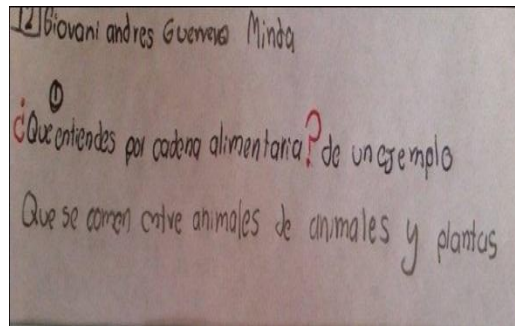 12 Giovani andres Guerrero Minda
①
¿Que entiendes por cadena alimentaria? de un ejemplo
Que se comen entre animales de animales y plantas